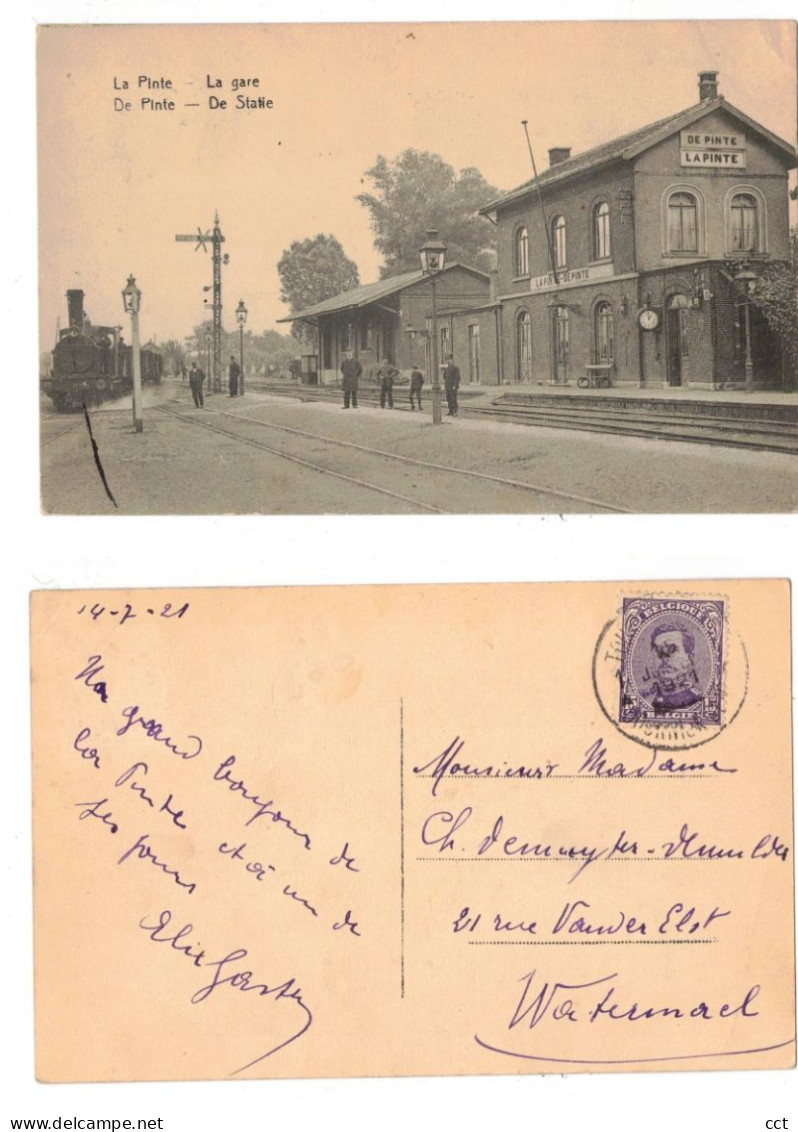 La Pinte - La gare
De Pinte — De Statie
DE PINTE
LA PINTE
LA PINTE-DE PINTE
14-7-21
Un grand bonjour de
la Pinte et à un de
ses jours
BELGIQUE
1921
BELGIË
Monsieur Madame
Ch. Demuyter-
21 rue Vander Elst
Watermael
www.delcampe.net
cct